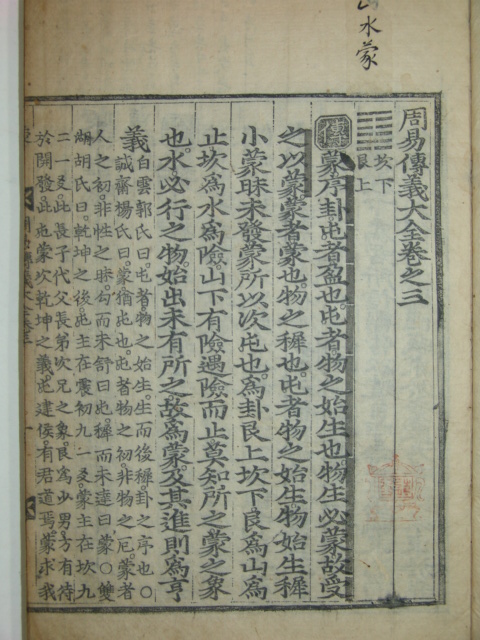 山水蒙
周易傳義大全卷之三
坎下
艮上
傳蒙序卦屯者盈也屯者物之始生也物生必蒙故受
之以蒙蒙者蒙也物之穉也屯者物之始生物始生穉
小蒙昧未發蒙所以次屯也爲卦艮上坎下艮爲山爲
止坎爲水爲險山下有險遇險而止莫知所之蒙之象
也水必行之物始出未有所之故爲蒙及其進則爲亨
義白雲郭氏曰屯者物之始生生而後穉卦之序也○
誠齋楊氏曰蒙猶屯也屯者物之初非物之厄蒙者
人之初非性之昧勾而未舒曰屯穉而未達曰蒙○雙
湖胡氏曰乾坤之後屯主在震初九一爻蒙主在坎九
二一爻此長子代父長弟次兄之象艮爲少男方有待
於開發此屯蒙次乾坤之義屯建侯有君道焉蒙求我